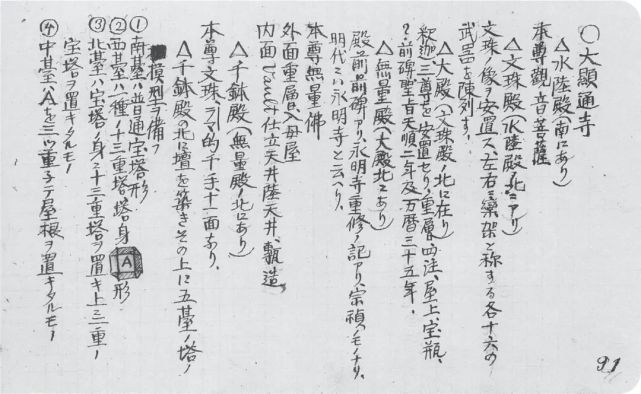 ○大顯通寺
△水陸殿(南にあり)
本尊觀音菩薩
△文珠殿(水陸殿ノ北ニアリ)
文珠ノ像ヲ安置ス、左右ニ藥架と称する各十六の
武器を陳列す。
△大殿(文珠殿ノ北に在り)
釈迦三尊を安置セり、重層、四注、屋上、宝瓶、
前碑聖旨天順二年及万暦三十五年、
△無量殿(大殿北にあり)
殿前前碑アリ、永明寺重修ノ記アリ、宗禎ノモノナリ、
明代ニハ永明寺と云へり、
本尊無量佛
外面重層入母屋
内面Vault仕立天井陸天井、甎造
△千鉢殿(無量殿ノ北にあり)
本尊文珠、ラマ的千手十一面あり、
△千鉢殿の北に壇を築きその上に五基ノ塔ノ
模型ヲ備フ
①南基ハ普通宝塔形
②西基ハ一種ノ十三重塔塔身A形
③北基ハ宝塔ノ身ニ十三重塔ヲ置キ上三重ノ
宝塔ヲ置キタルモノ
④中基ハAを三ツ重子テ屋根ヲ置キタルモノ
91